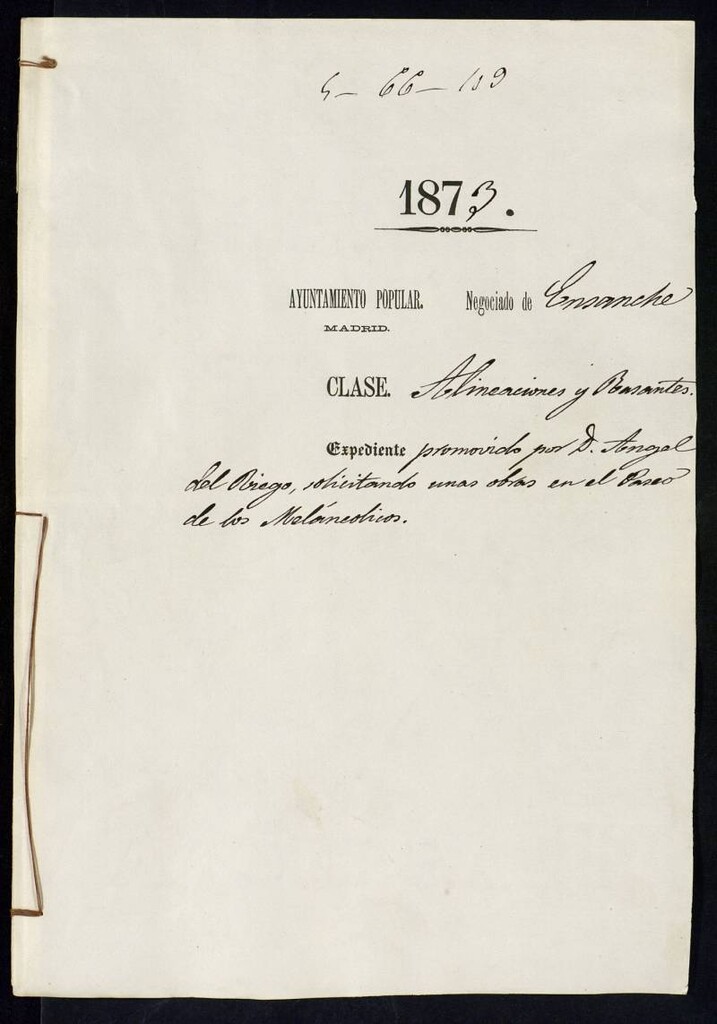 5-66-109
1873.
AYUNTAMIENTO POPULAR. Negociado de Ensanche
MADRID.
CLASE. Alineaciones y Rasantes.
Expediente promovido por D. Angel
del Riego, solicitando unas obras en el Paseo
de los Meláncolicos.